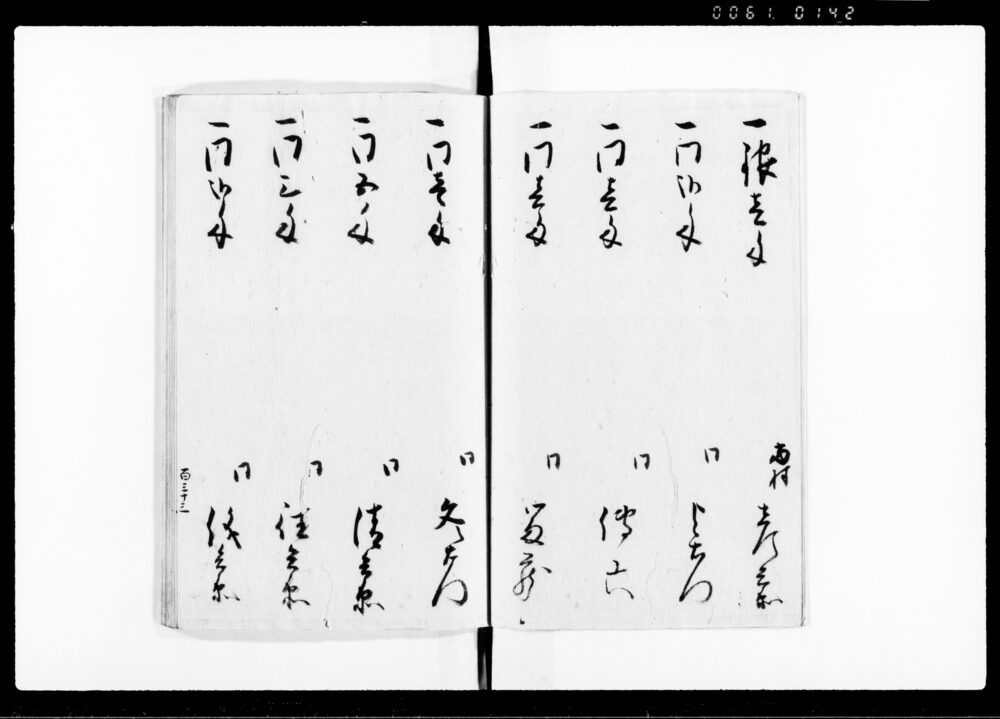 0061 0142
一銀壱匁
当村
彦兵衛
一同弐匁
同
与右衛門
一同壱匁
同
伝六
一同壱匁
同
一同壱匁
同
久右衛門
一同五匁
同
清兵衛
一同三匁
同
一同弐匁
同
儀兵衛
百三十三